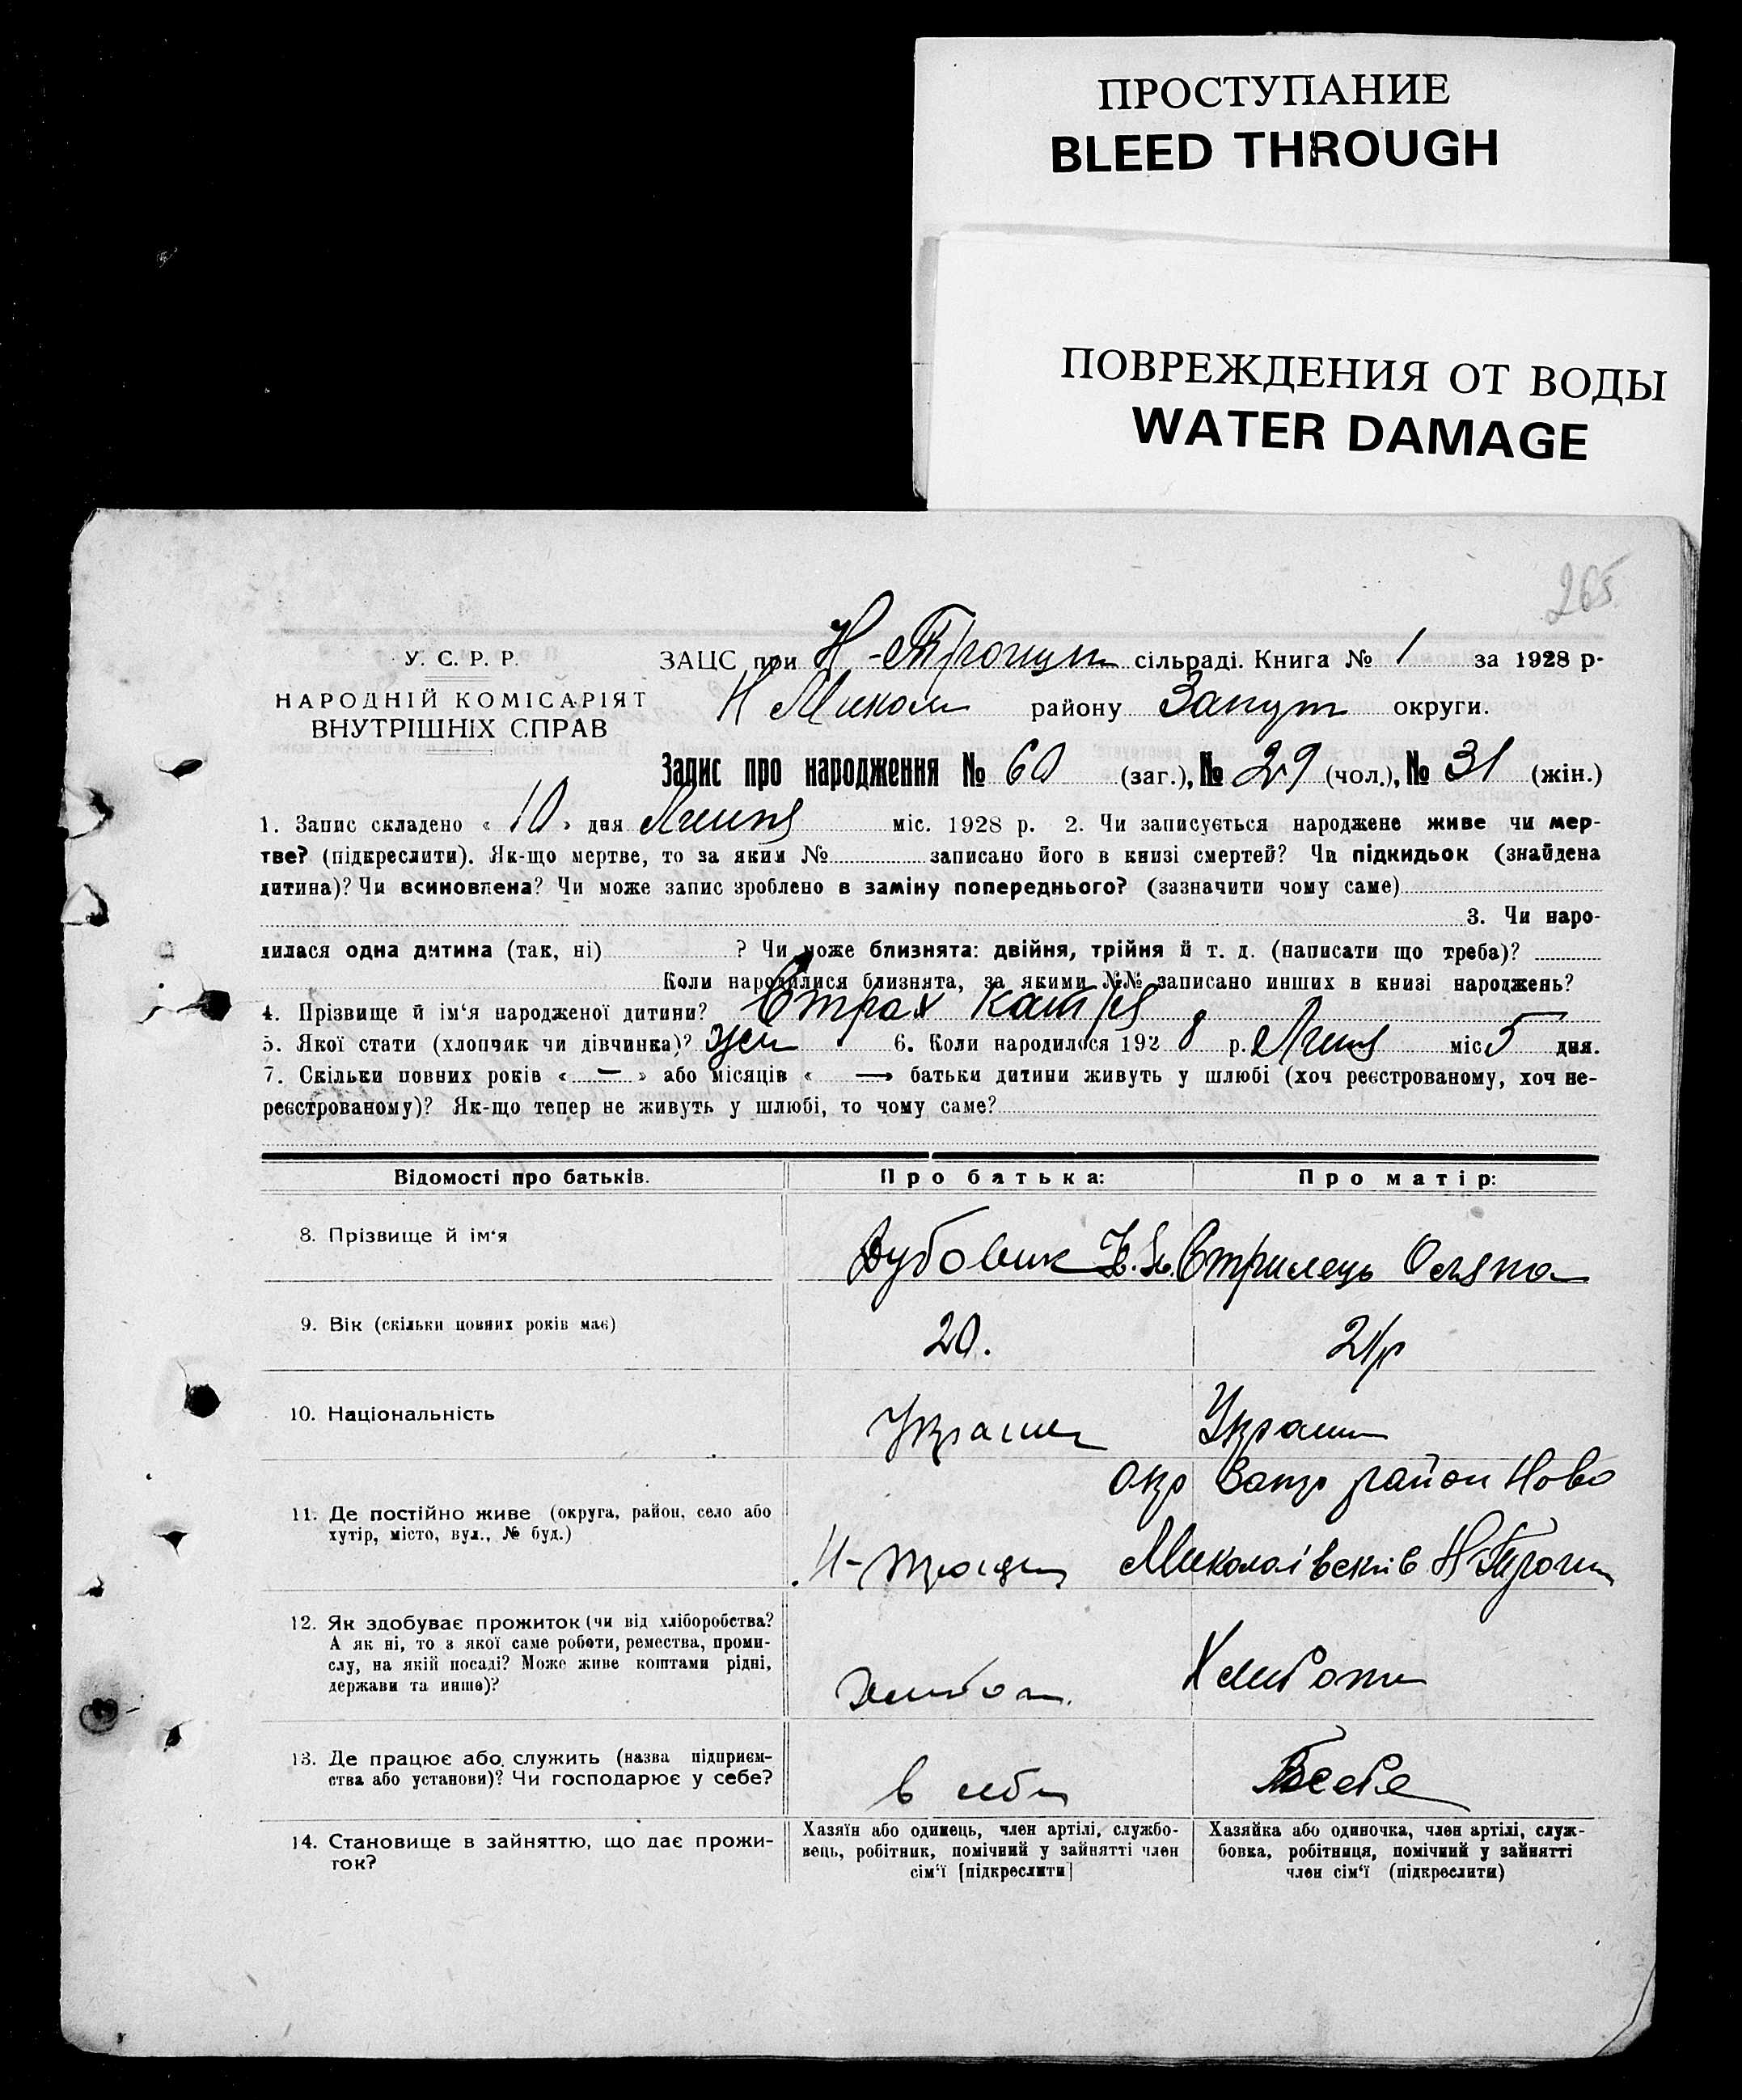 ПРОСТУПАНИЕ
BLEED THROUGH
ПОВРЕЖДЕНИЯ ОТ ВОДЫ
WATER DAMAGE
265
У. С. Р. Р.
НАРОДНІЙ КОМІСАРІЯТ
ВНУТРІШНІХ СПРАВ
ЗАЦС при Н-Троицьк сільраді. Книга № 1 за 1928 р-
Н Микол району Запуг округи.
Запис про народження № 60 (заг.), № 29 (чол.), № 31 (жін.)
1. Запис складено « 10 » дня Липня міс. 1928 р. 2. Чи записується народжене живе чи мер-
тве? (підкреслити). Як-що мертве, то за яким № записано його в книзі смертей? Чи підкидьок (знайдена
дитина)? Чи всиновлена? Чи може запис зроблено в заміну попереднього? (зазначити чому саме)
3. Чи наро-
дилася одна дитина (так, ні) ? Чи може близнята: двійня, трійня й т. д. (написати що треба)?
Коли народилися близнята, за якими №№ записано инших в книзі народжень?
4. Прізвище й ім'я народженої дитини? Страх Катря
5. Якої стати (хлопчик чи дівчинка)? жен 6. Коли народилося 1928 р. Липня міс 5 дня.
7. Скільки повних років « — » або місяців « — » батьки дитини живуть у шлюбі (хоч реєстрованому, хоч не-
реєстрованому)? Як-що тепер не живуть у шлюбі, то чому саме?
Відомості про батьків. Про батька: Про матір:
8. Прізвище й ім'я Дубовик Стрилець Оляна
9. Вік (скільки повних років має) 20. 21/р
10. Національність Украинец Украин
окр Запр район Ново
11. Де постійно живе (округа, район, село або
хутір, місто, вул., № буд.) Миколаівский
12. Як здобуває прожиток (чи від хліборобства?
А як ні, то з якої саме роботи, ремества, проми-
слу, на якій посаді? Може живе коштами рідні,
держави та инше)?
13. Де працює або служить (назва підприєм-
ства або установи)? Чи господарює у себе? в себя В себе
14. Становище в зайняттю, що дає прожи-
ток?
Хазяїн або одинець, член артілі, службо-
вець, робітник, помічний у зайнятті член
сім'ї [підкреслити]
Хазяйка або одиночка, член артілі, служ-
бовка, робітниця, помічний у зайнятті
член сім'ї (підкреслити)